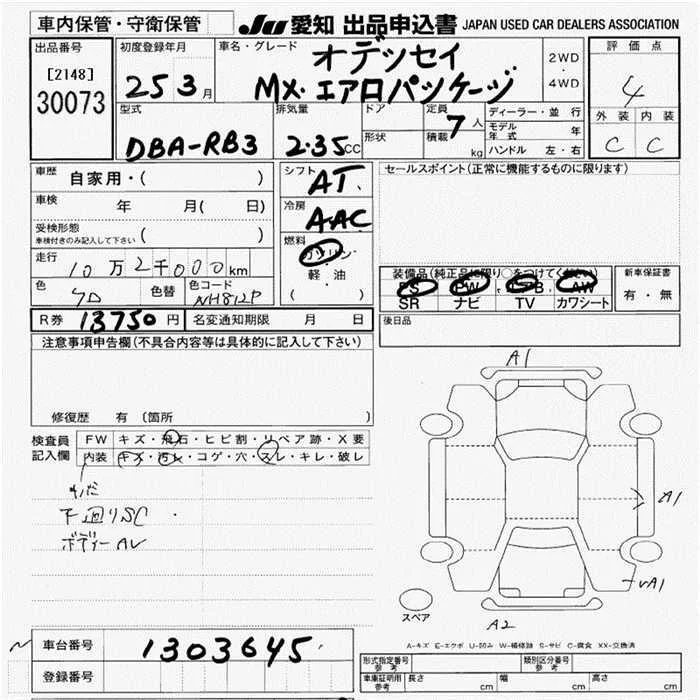 車内保管・守衛保管 JU 愛知 出品申込書 JAPAN USED CAR DEALERS ASSOCIATION
出品番号 [2148] 30073
初度登録年月 25 3月
車名・グレード オデッセイ
MX・エアロパッケージ
2WD・4WD
評価点 4
外装 内装
C C
型式 DBA-RB3
排気量 2.35CC
ドア
形状
定員 7人
積載 kg
ディーラー・並行
モデル年式 年
ハンドル 左・右
車歴 自家用・( )
車検 年 月( 日)
受検形態
車検付きのみ記入して下さい ( )
走行 10万2千000km
色
色替
色コード NH812P
シフト AT.
冷房 AAC
燃料 ガソリン・軽油
( )
セールスポイント(正常に機能するものに限ります)
装備品(純正品に限り○をつけてください)
PS PW AW
SR ナビ TV カワシート
新車保証書
有・無
R券 13750円 名変通知期限 月 日
後日品
注意事項申告欄(不具合内容等は具体的に記入して下さい)
修復歴 有 〔箇所
検査員記入欄
FW キズ・飛石・ヒビ割・リペア跡・X要
内装 キズ・汚レ・コゲ・穴・スレ・キレ・破レ
下廻りSC
ボディーAV
A1
A1
A1
A2
スペア
A-キズ E-エクボ U-凹み W-補修跡 S-サビ C-腐食 XX-交換済
車台番号 1303645
登録番号
形式指定番号 参考
類別区分番号 参考
車庫証明用 参考 長さ cm 幅 cm 高さ cm